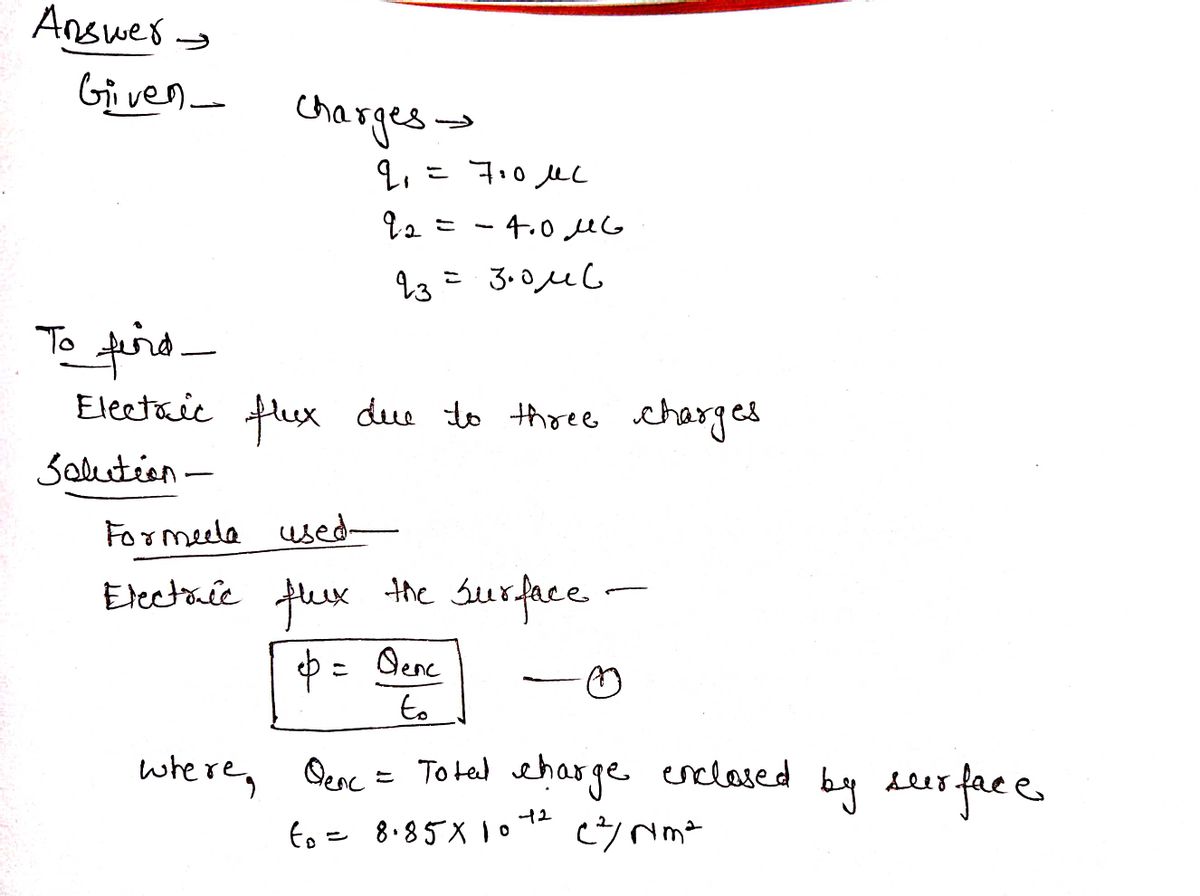 Answer →
Given —
Charges →
q₁ = 7.0 μC
q₂ = - 4.0 μC
q₃ = 3.0 μC
To find —
Electric flux due to three charges
Solution —
Formula used —
Electric flux the surface —
ϕ = Qenc / ε₀ — ①
where, Qenc = Total charge enclosed by surface
ε₀ = 8.85 X 10⁻¹² C²/Nm²